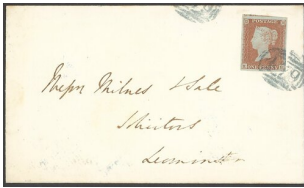 POSTAGE
Messrs Milnes & Sale
Solicitors
Leominster